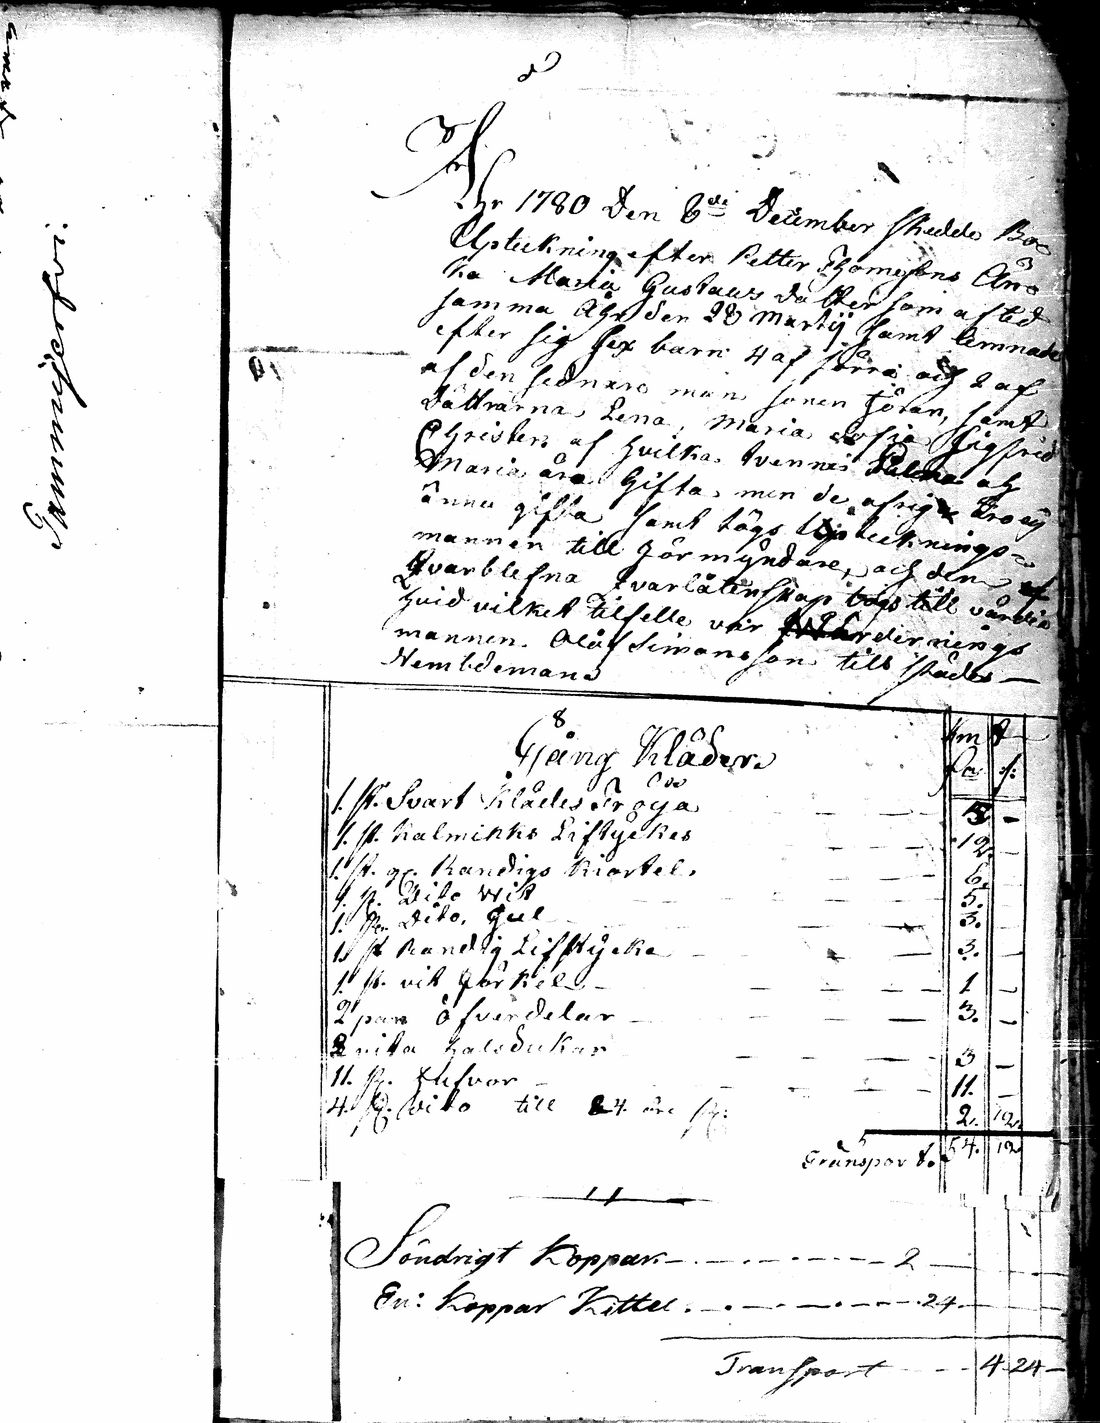 Tammijerfvi:
Åhr 1780 den 6de December skedde Bo=
Upteckning efter Petter Thomesons Än=
ka Maria Gustavs datter som afled
samma Åhr den 28 Martij samt lemnade
efter sig sex barn 4 af förra och 2 af
af den sednare man sonen Jöran, samt
dåttrarna Lena, Maria Sofia Sigfrid
Christer, af hvilka tvennes och
Maria äro Gifta, men de öfrige äro ej
ännu gifta samt togs Uptecknings=
mannen till Förmyndare, och den
qvarblefna qvarlåtenskap togs till värde
hvid vilket tilfelle var Wärdernings
mannen. Olof Simonsson till städes —
Nembdeman
Gång Kläder
Km
1. st. Svart Klädes Tröja 5 —
1. st. Kalminks Liftyckes 12. —
1. st. gr. Randigs Kiortel. 6. —
1. st. Dito wit 5. —
1. st. Dito. Gul 3. —
1. st Randig Lifstycke 3. —
1. st. vit förkel 1 —
2 par öfverdelar 3. —
3 vita halsdukar 3 —
11. st. hufvor 11. —
4. st. Dito till 24. öre st: 2. 12.
Transport. 54. 12
11
Söndrigt Koppar 2
En: Koppar Kittel. 24
Transport 4 24 —